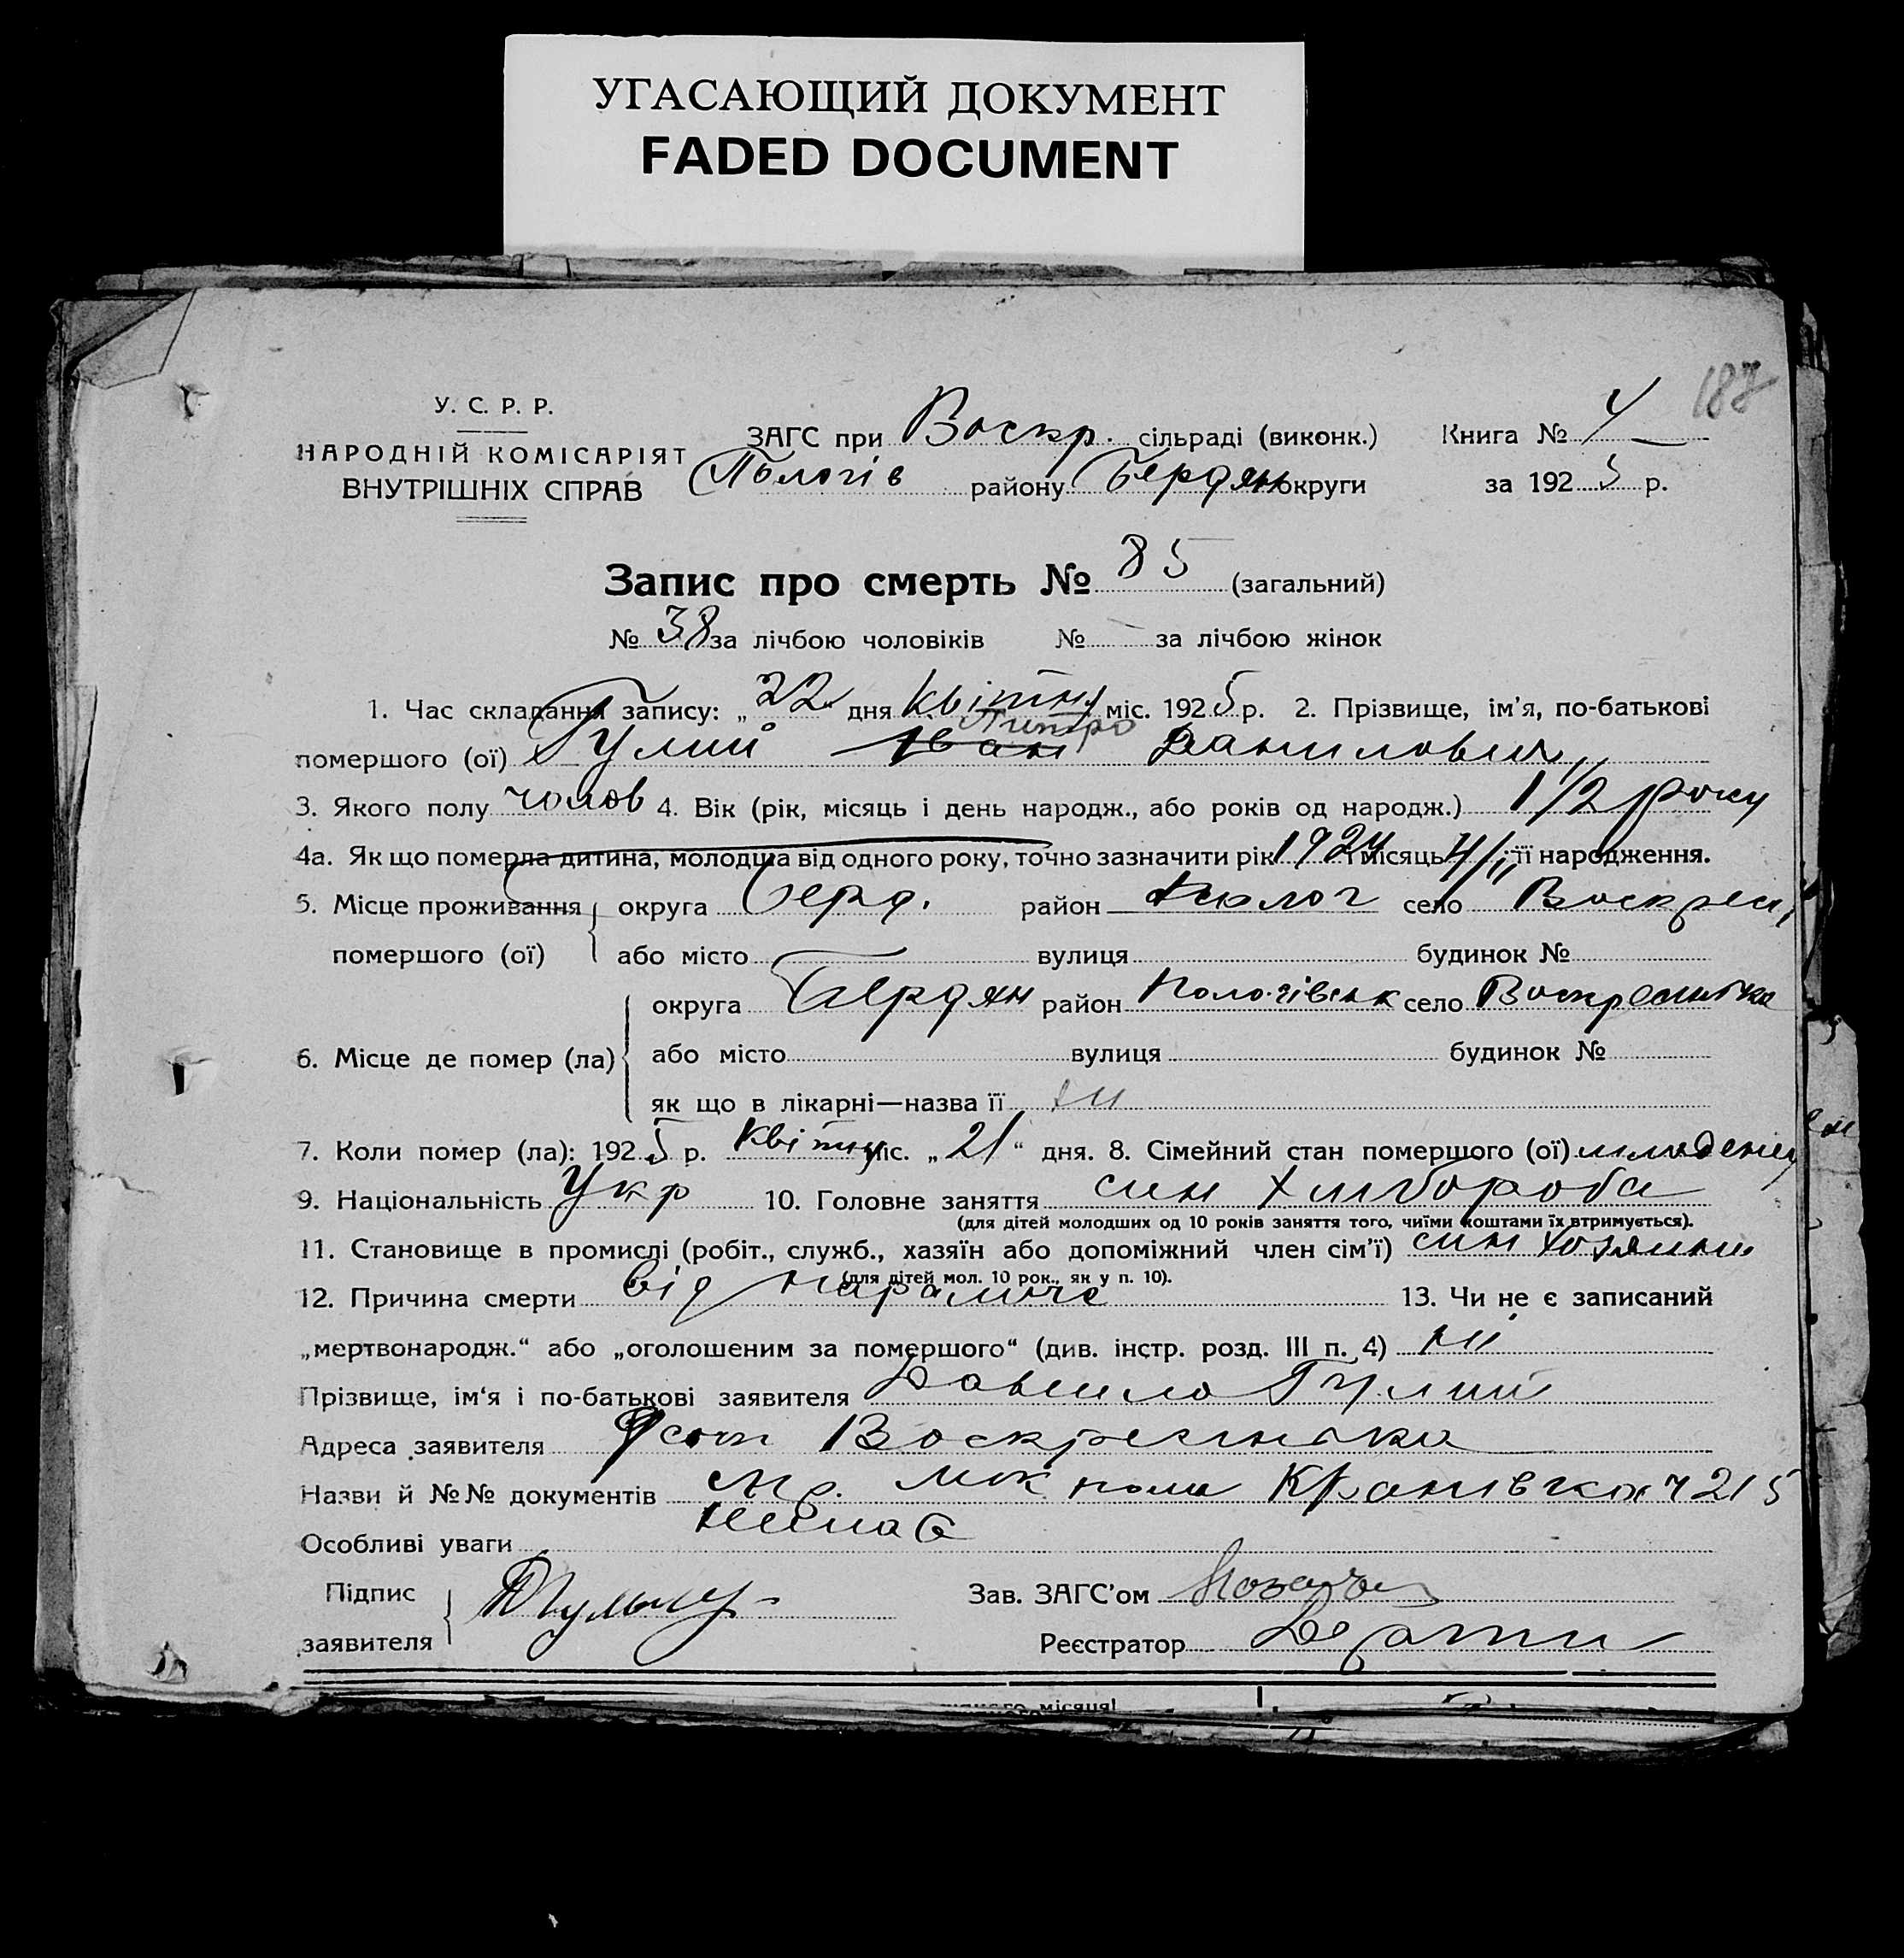 УГАСАЮЩИЙ ДОКУМЕНТ
FADED DOCUMENT
187
У. С. Р. Р.
НАРОДНІЙ КОМІСАРІЯТ
ВНУТРІШНІХ СПРАВ
ЗАГС при Воскр. сільраді (виконк.) Книга №
Пологів району Бердян округи за 192 5 р.
Запис про смерть № 85 (загальний)
№ 38 за лічбою чоловіків № — за лічбою жінок
1. Час складання запису: „22" дня Квітня міс. 1925 р. 2. Прізвище, ім'я, по-батькові
Петро
помершого (ої) Гулий Іван Данилович
3. Якого полу чолов 4. Вік (рік, місяць і день народж., або років од народж.) 1 1/2 року
4а. Як що померла дитина, молодша від одного року, точно зазначити рік 1924 і місяць 4/II її народження.
5. Місце проживання округа Берд. район Полог село Воскресен
помершого (ої) або місто вулиця будинок №
округа Бердян район Пологівськ село Воскресенка
6. Місце де помер (ла) або місто вулиця будинок №
як що в лікарні—назва її ні
7. Коли помер (ла): 1925 р. Квітня міс. „21" дня. 8. Сімейний стан помершого (ої) младенец
9. Національність Укр 10. Головне заняття син хлибороба
(для дітей молодших од 10 років заняття того, чиїми коштами їх втримується).
11. Становище в промислі (робіт., служб., хазяїн або допоміжний член сім'ї) син хозяина
(для дітей мол. 10 рок., як у п. 10).
12. Причина смерти від 13. Чи не є записаний
„мертвонародж." або „оголошеним за помершого" (див. інстр. розд. III п. 4) ні
Прізвище, ім'я і по-батькові заявителя Данило Гулий
Адреса заявителя Воскресенка
Назви й №№ документів 4215
Особливі уваги немає
Підпис
заявителя
Зав. ЗАГС'ом
Реєстратор
місяця!